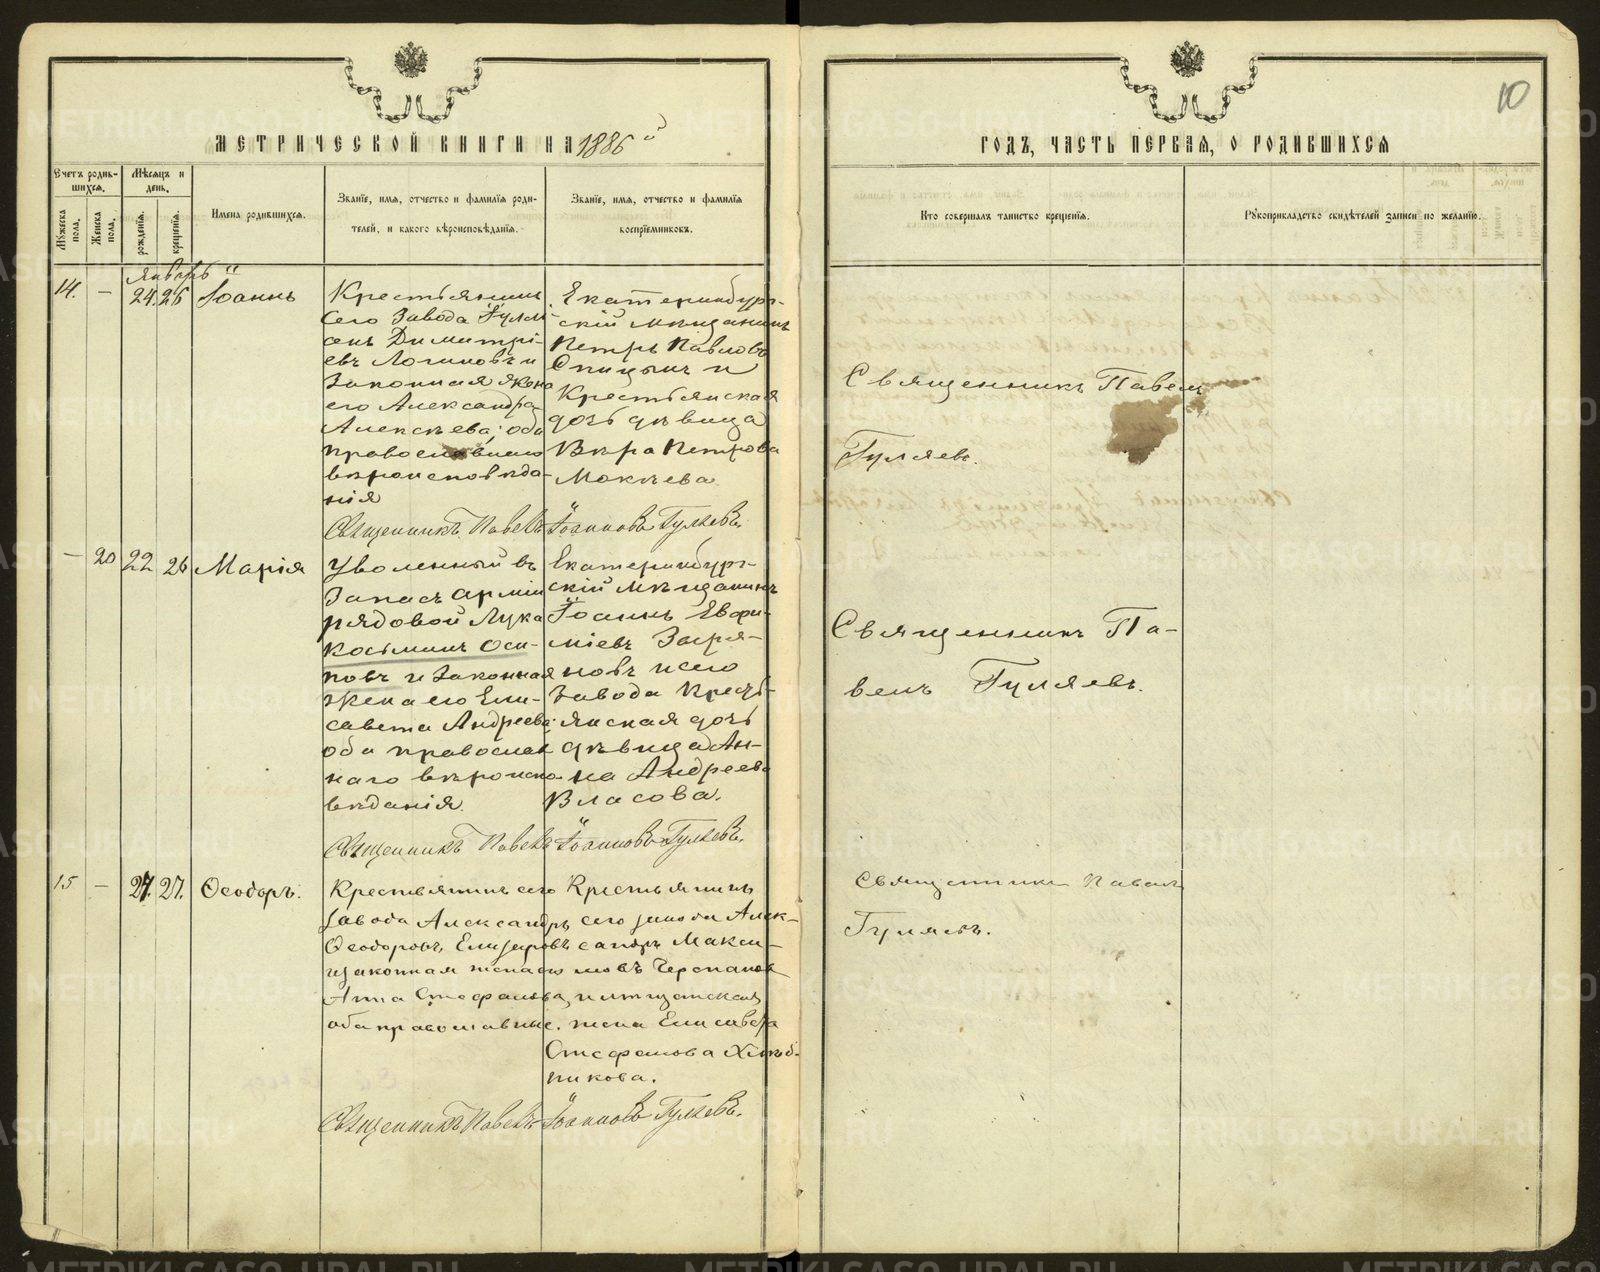 10
МЕТРИЧЕСКОЙ КНИГИ НА 1886й
ГОДЪ, ЧАСТЬ ПЕРВАЯ, О РОДИВШИХСЯ
Счетъ родив-
шихся.
Мужеска пола.
Женска пола.
Мѣсяцъ и
день.
рожденія.
крещенія.
Имена родившихся.
Званіе, имя, отчество и фамилія роди-
телей, и какого вѣроисповѣданія.
Званіе, имя, отчество и фамилія
воспріемниковъ.
Кто совершалъ таинство крещенія.
Рукоприкладство свидѣтелей записи по желанію.
Январь
14. — 24. 26 Іоаннъ
Крестьянинъ
сего Завода
Димитрі-
евъ Логиновъ и
законная жена
его Александра
Алексѣева; оба
православнаго
вѣроисповѣда-
нія
Екатеринбург-
скій мѣщанинъ
Петръ Павловъ
Спицынъ и
Крестьянская
дочь дѣвица
Вѣра Петрова
Мокѣева
Священникъ Павелъ
Гуляевъ.
Священникъ Павелъ Іоанновъ Гуляевъ.
— 20 22 26 Марія
Уволенный въ
запасъ арміи
рядовой Лука
Косьминъ Оси-
повъ и законная
жена его Ели-
савета Андреева;
оба православ
наго вѣроиспо
вѣданія.
Екатеринбург-
скій мѣщанинъ
Іоаннъ Евфи-
міевъ Зыря-
новъ и сего
Завода Кресть-
янская дочь
дѣвица Ан-
на Андреева
Власова.
Священникъ Па-
велъ Гуляевъ.
Священникъ Павелъ Іоанновъ Гуляевъ.
15 — 27. 27. Ѳеодоръ.
Крестьянинъ сего
завода Александръ
Ѳеодоровъ Елизаровъ
и законная жена его
Анна Стефанова,
оба православные.
Крестьянинъ
сего завода Алек-
сандръ Макси-
мовъ Черепановъ
и мѣщанская
жена Елисавета
Стефанова Хлѣб-
никова.
Священникъ Павелъ
Гуляевъ.
Священникъ Павелъ Іоанновъ Гуляевъ.
METRIKI.GASO-URAL.RU